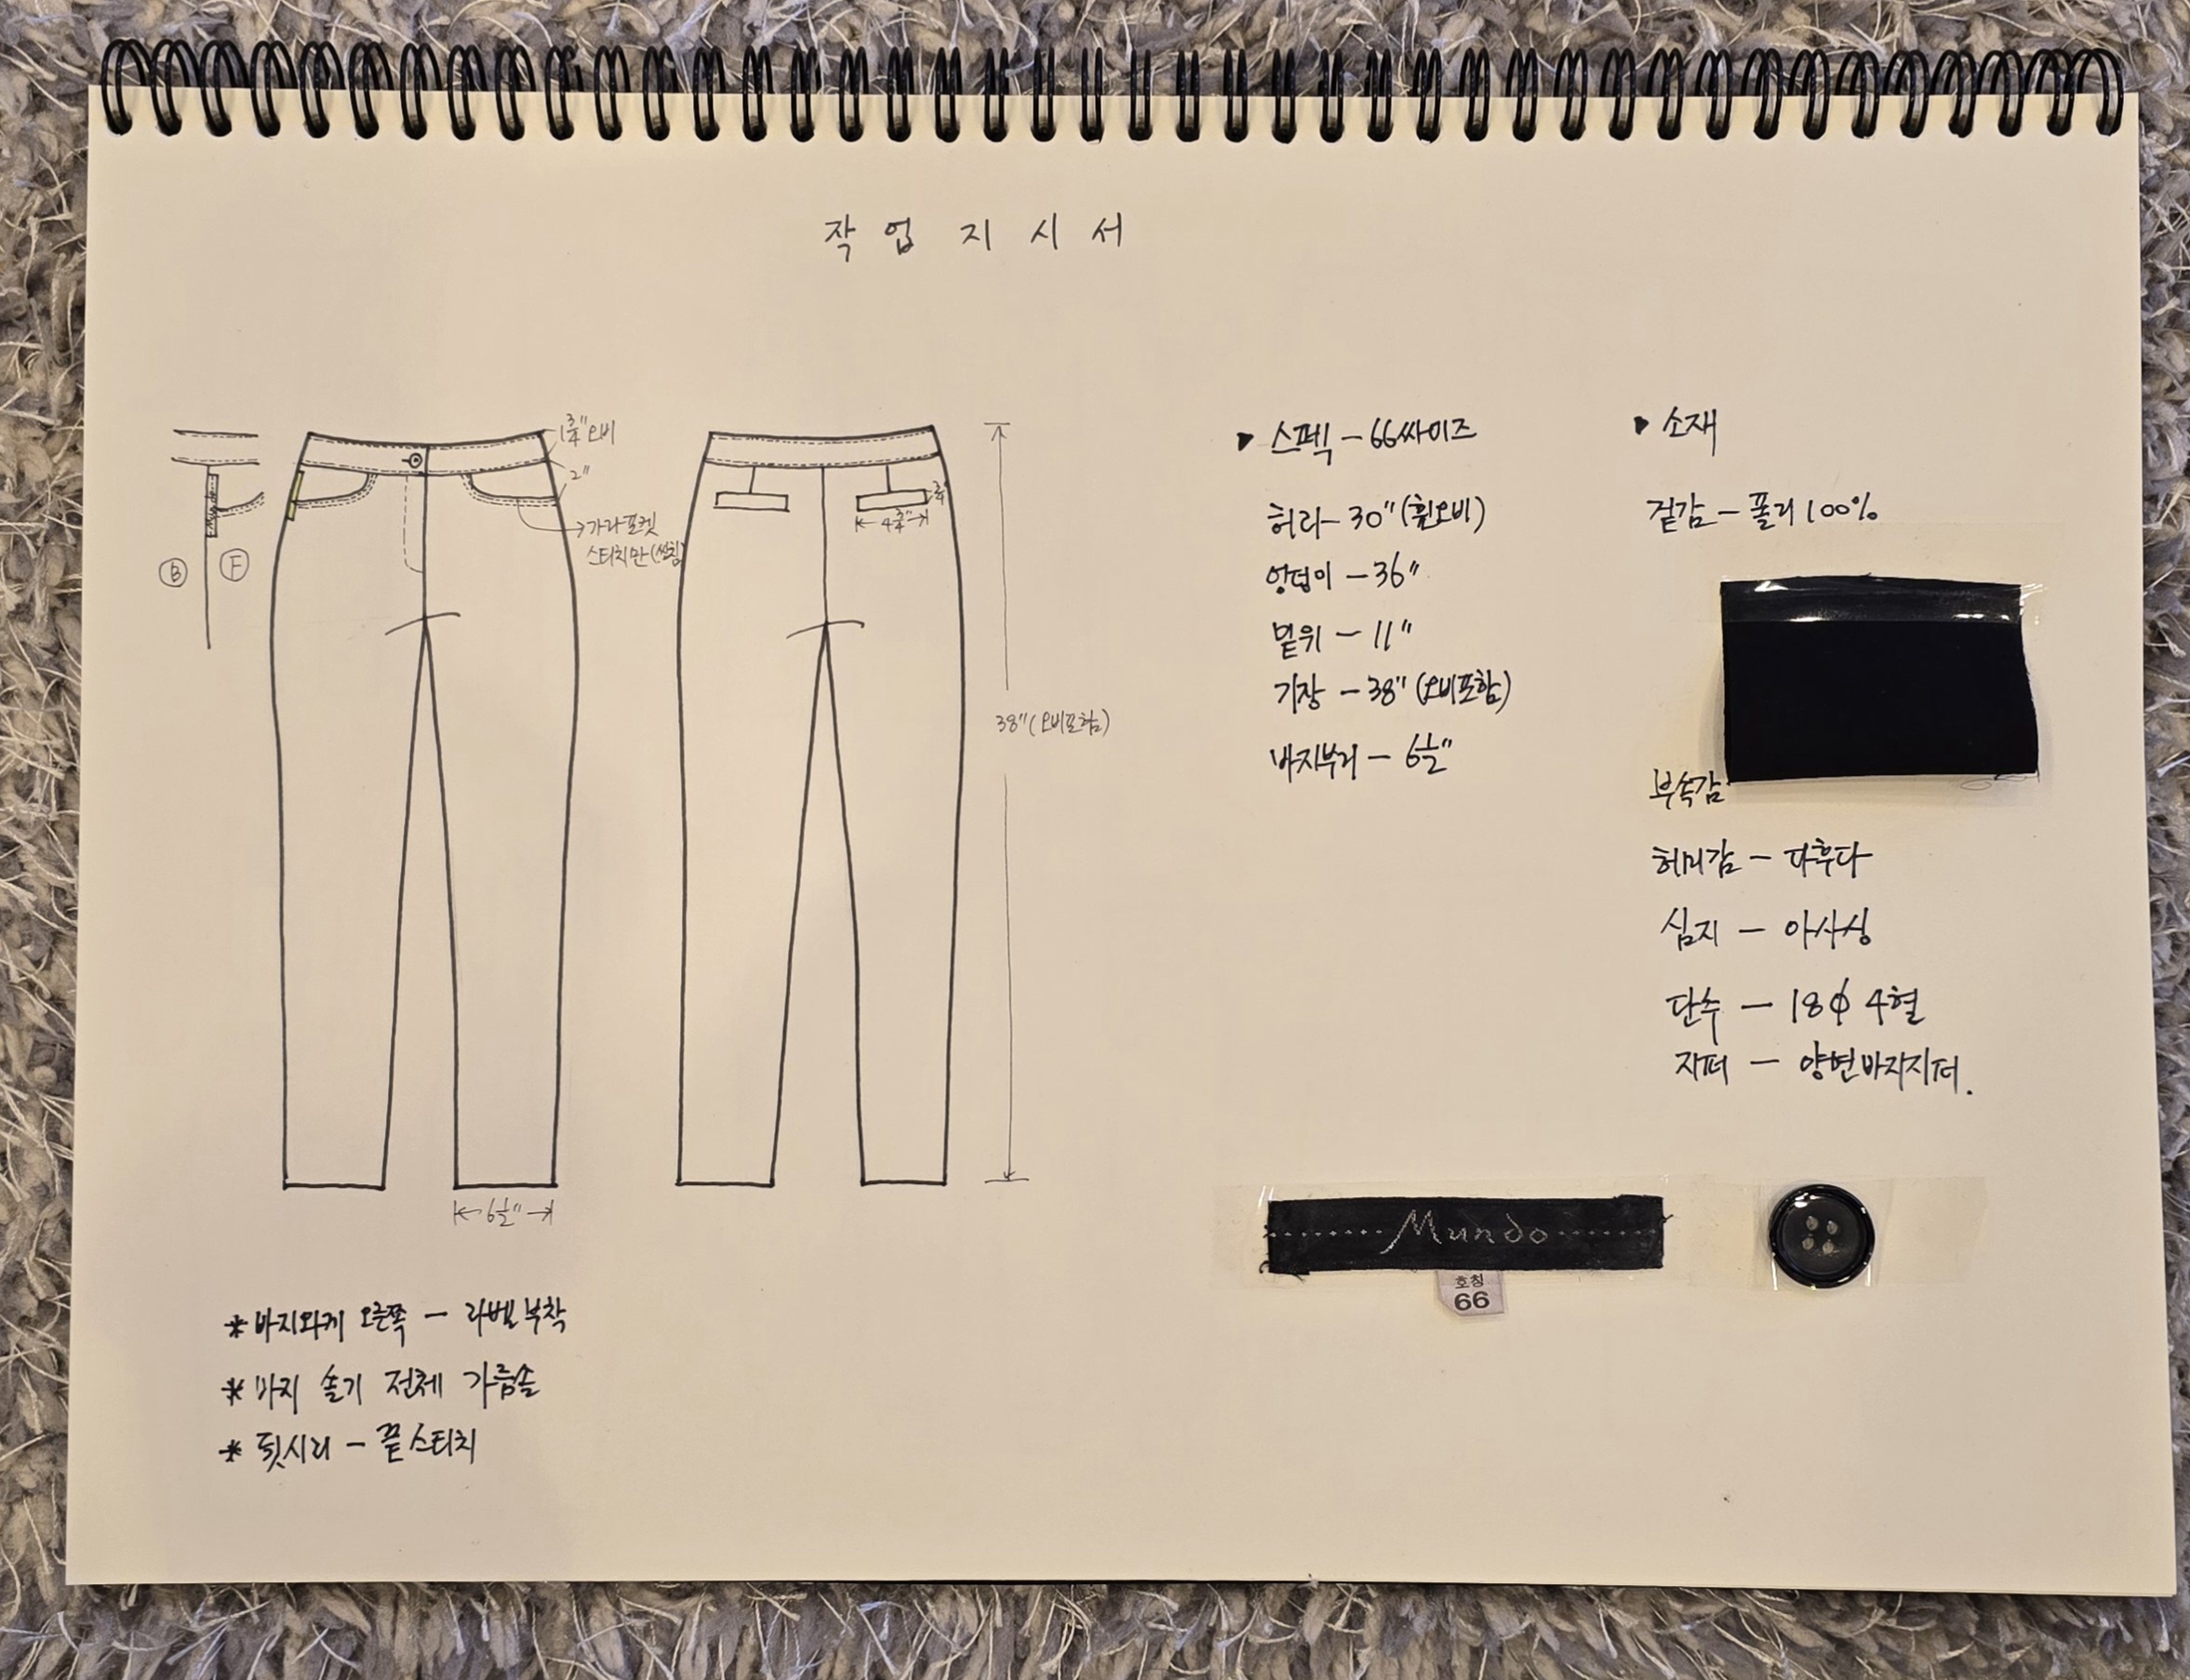 작업지시서
1 3/4" 오비
2"
가라포켓
스티치만(쌍침)
B F
3/4"
4 3/4"
38"(오비포함)
6 1/2"
*바지와끼 오른쪽 - 라벨부착
*바지 솔기 전체 가름솔
*뒷시리 - 끝스티치
▶ 스펙 - 66싸이즈
허리 - 30"(휜오비)
엉덩이 - 36"
밑위 - 11"
기장 - 38"(오비포함)
바지부리 - 6 1/2"
▶ 소재
겉감 - 폴리100%
부속감
허미감 - 다후다
심지 - 아사싱
단추 - 18Φ 4혈
지퍼 - 양면바지지퍼.
Mundo
호칭
66